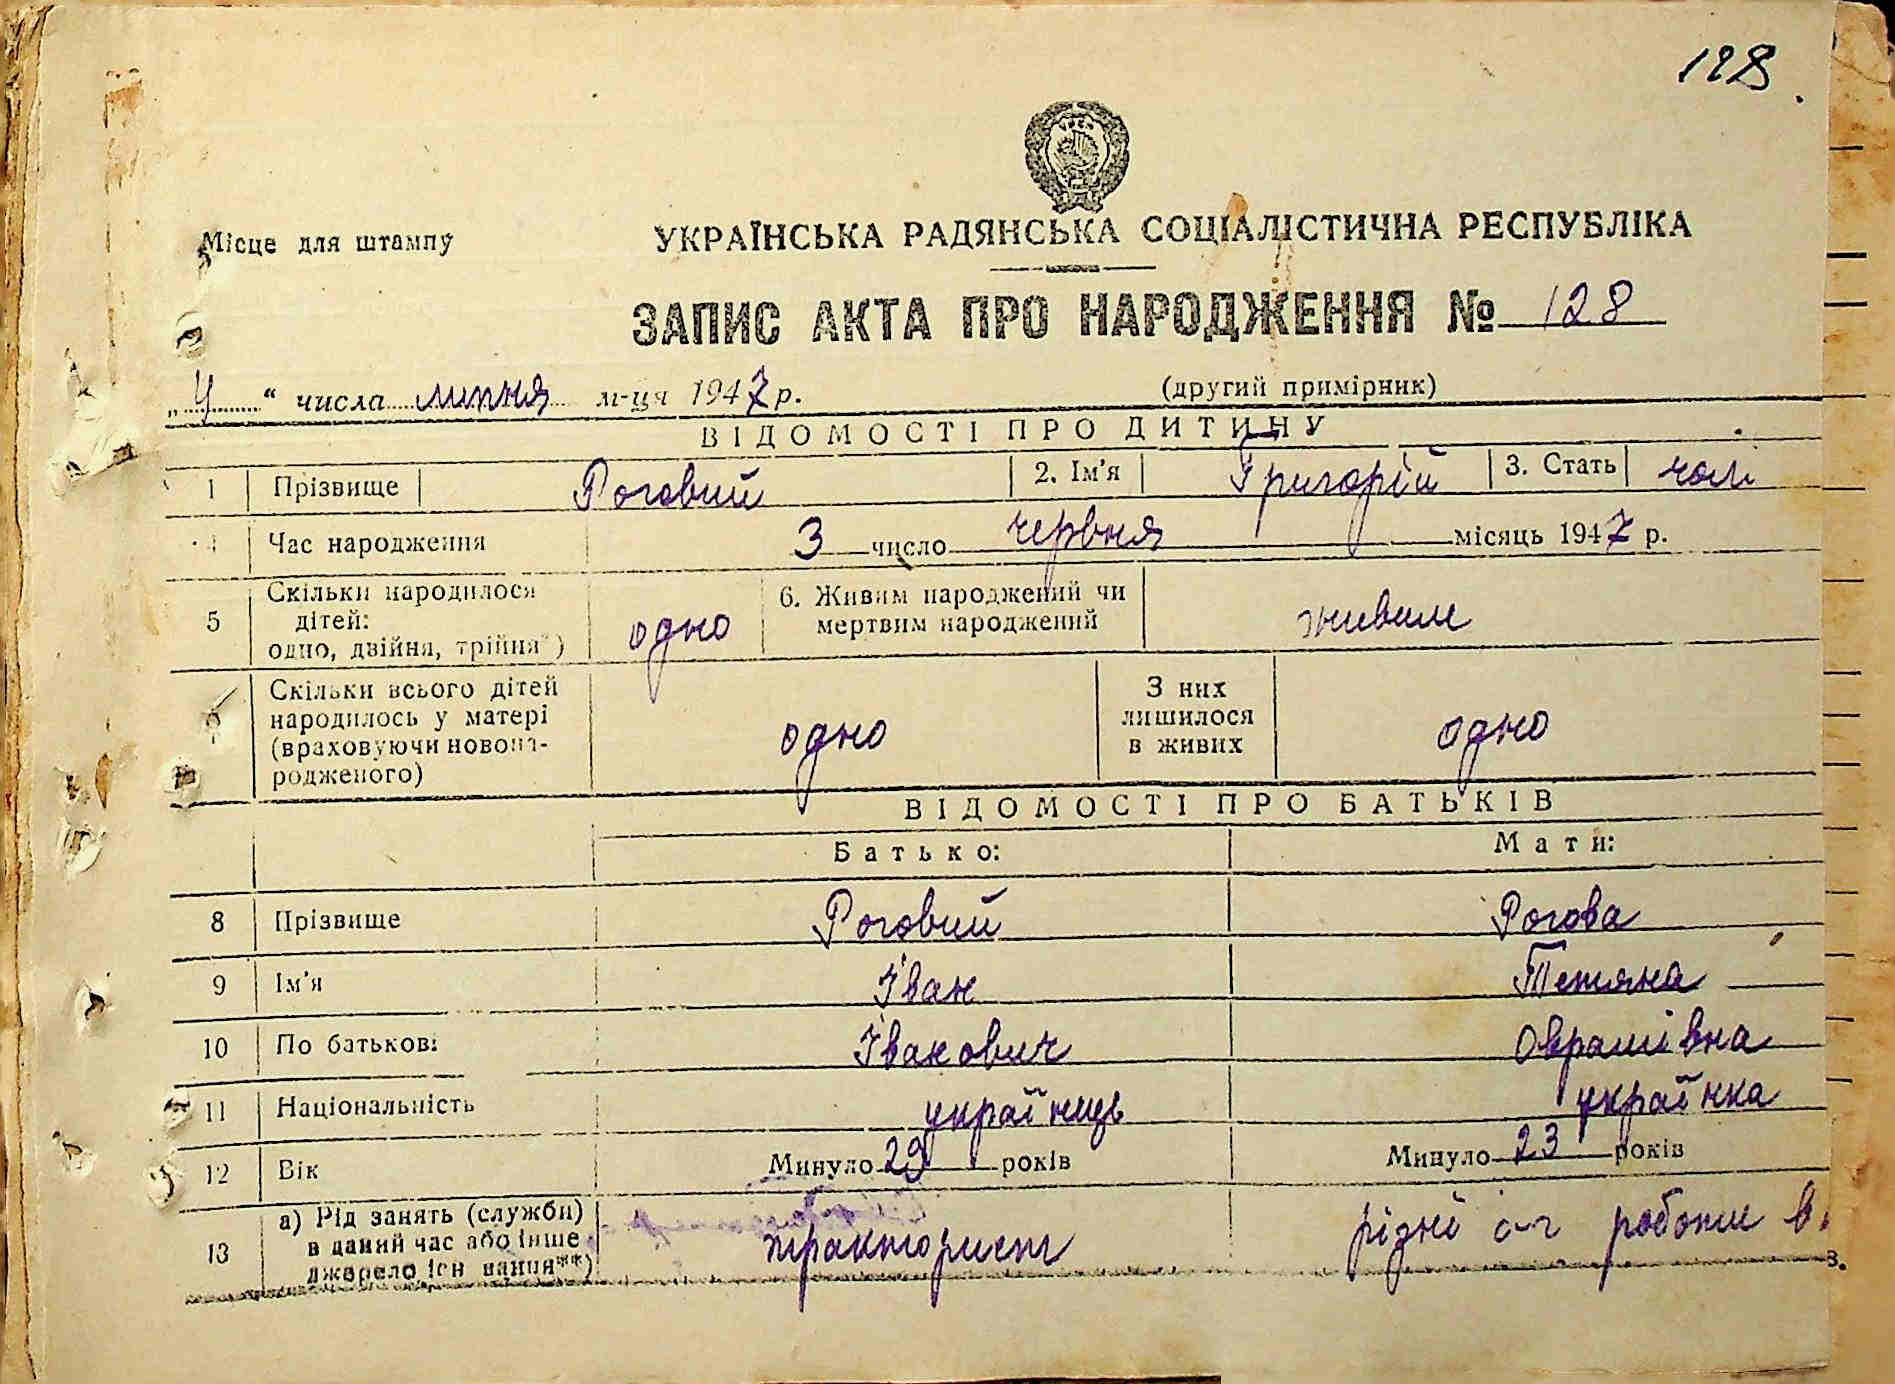 128.
УРСР
Місце для штампу
УКРАЇНСЬКА РАДЯНСЬКА СОЦІАЛІСТИЧНА РЕСПУБЛІКА
ЗАПИС АКТА ПРО НАРОДЖЕННЯ № 128
„4“ числа липня м-ця 1947 р. (другий примірник)
ВІДОМОСТІ ПРО ДИТИНУ
1 Прізвище Роговий 2. Ім'я Григорій 3. Стать чол.
4 Час народження 3 число червня місяць 1947 р.
5 Скільки народилося дітей: одно, двійня, трійня*) одно 6. Живим народжений чи мертвим народжений живим
Скільки всього дітей народилось у матері (враховуючи новонародженого) одно З них лишилося в живих одно
ВІДОМОСТІ ПРО БАТЬКІВ
Батько: Мати:
8 Прізвище Роговий Рогова
9 Ім'я Іван Тетяна
10 По батькові Іванович Оврамівна
11 Національність українець українка
12 Вік Минуло 29 років Минуло 23 років
13 а) Рід занять (служби) в даний час або інше джерело існування**) тракторист різні с-г роботи в